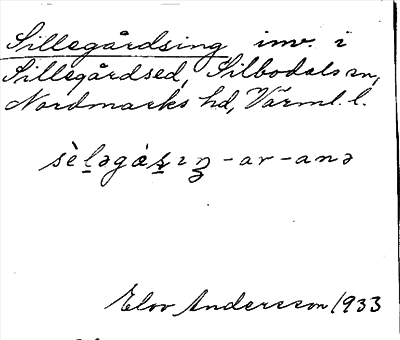 Sillegårdsing inv. i
Sillegårdsed, Silbodals sn,
Nordmarks hd, Värml. l.
Elov Andersson 1933